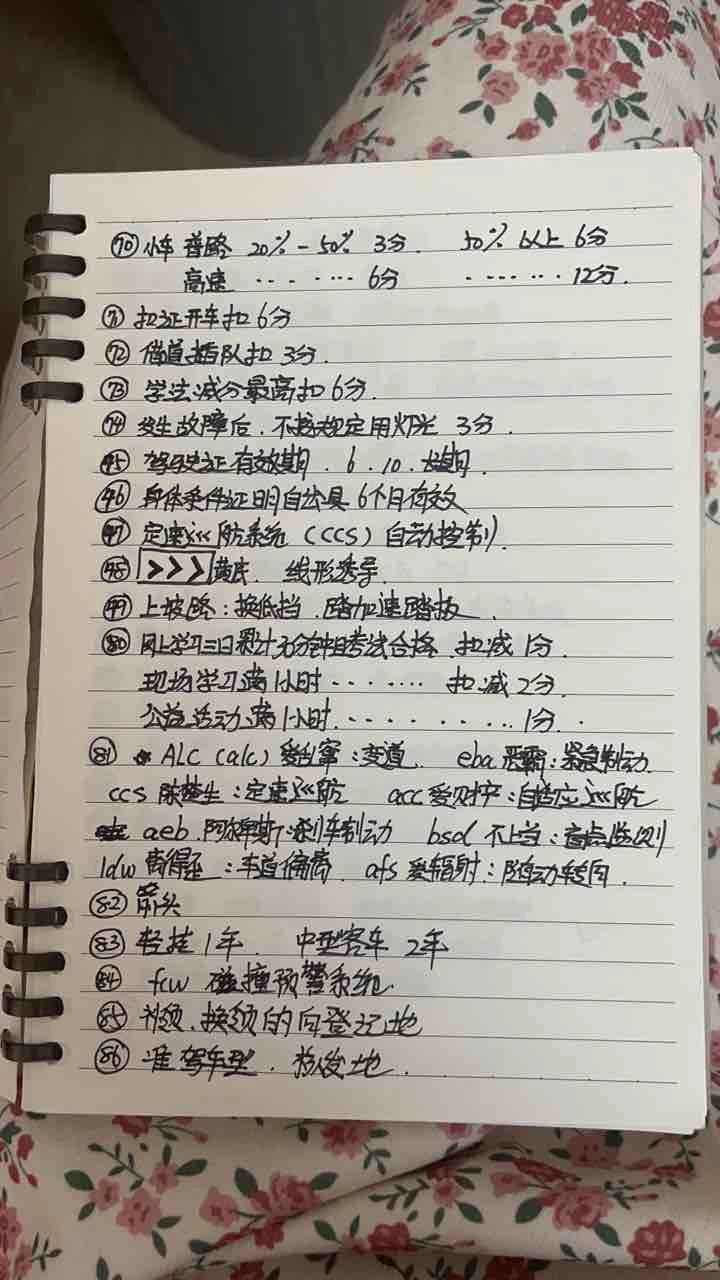 ⑦⓪ 小车 普路 20% - 50% 3分. 50% 以上 6分
高速 ········ 6分 ······ 12分.
⑦① 扣证开车扣 6分
⑦② 借道插队扣 3分.
⑦③ 学法减分最高扣 6分.
⑦④ 发生故障后.不按规定用灯光 3分.
驾驶证有效期. 6. 10. 长期.
身体条件证明自出具 6个月有效
定速巡航系统 (CCS) 自动控制.
>>> 黄底. 线形诱导.
上坡路:换低挡.踏加速踏板.
⑧⓪ 网上学习三日累计30分钟且考试合格 扣减 1分.
现场学习满1小时 ······· 扣减 2分.
公益活动满1小时. ········ 1分.
⑧① ALC (alc) 爱乱窜:变道. eba 恶霸:紧急制动.
ccs 陈楚生:定速巡航 acc 爱贝护:自适应巡航
aeb.阿尔卑斯:刹车制动 bsd 不上当:盲点监测
ldw 离得歪:车道偏离. afs 爱辐射:随动转向.
⑧② 箭头
⑧③ 轻挂 1年. 中型客车 2年
⑧④ fcw 碰撞预警系统.
⑧⑤ 补领.换领的向登记地
⑧⑥ 准驾车型.核发地.